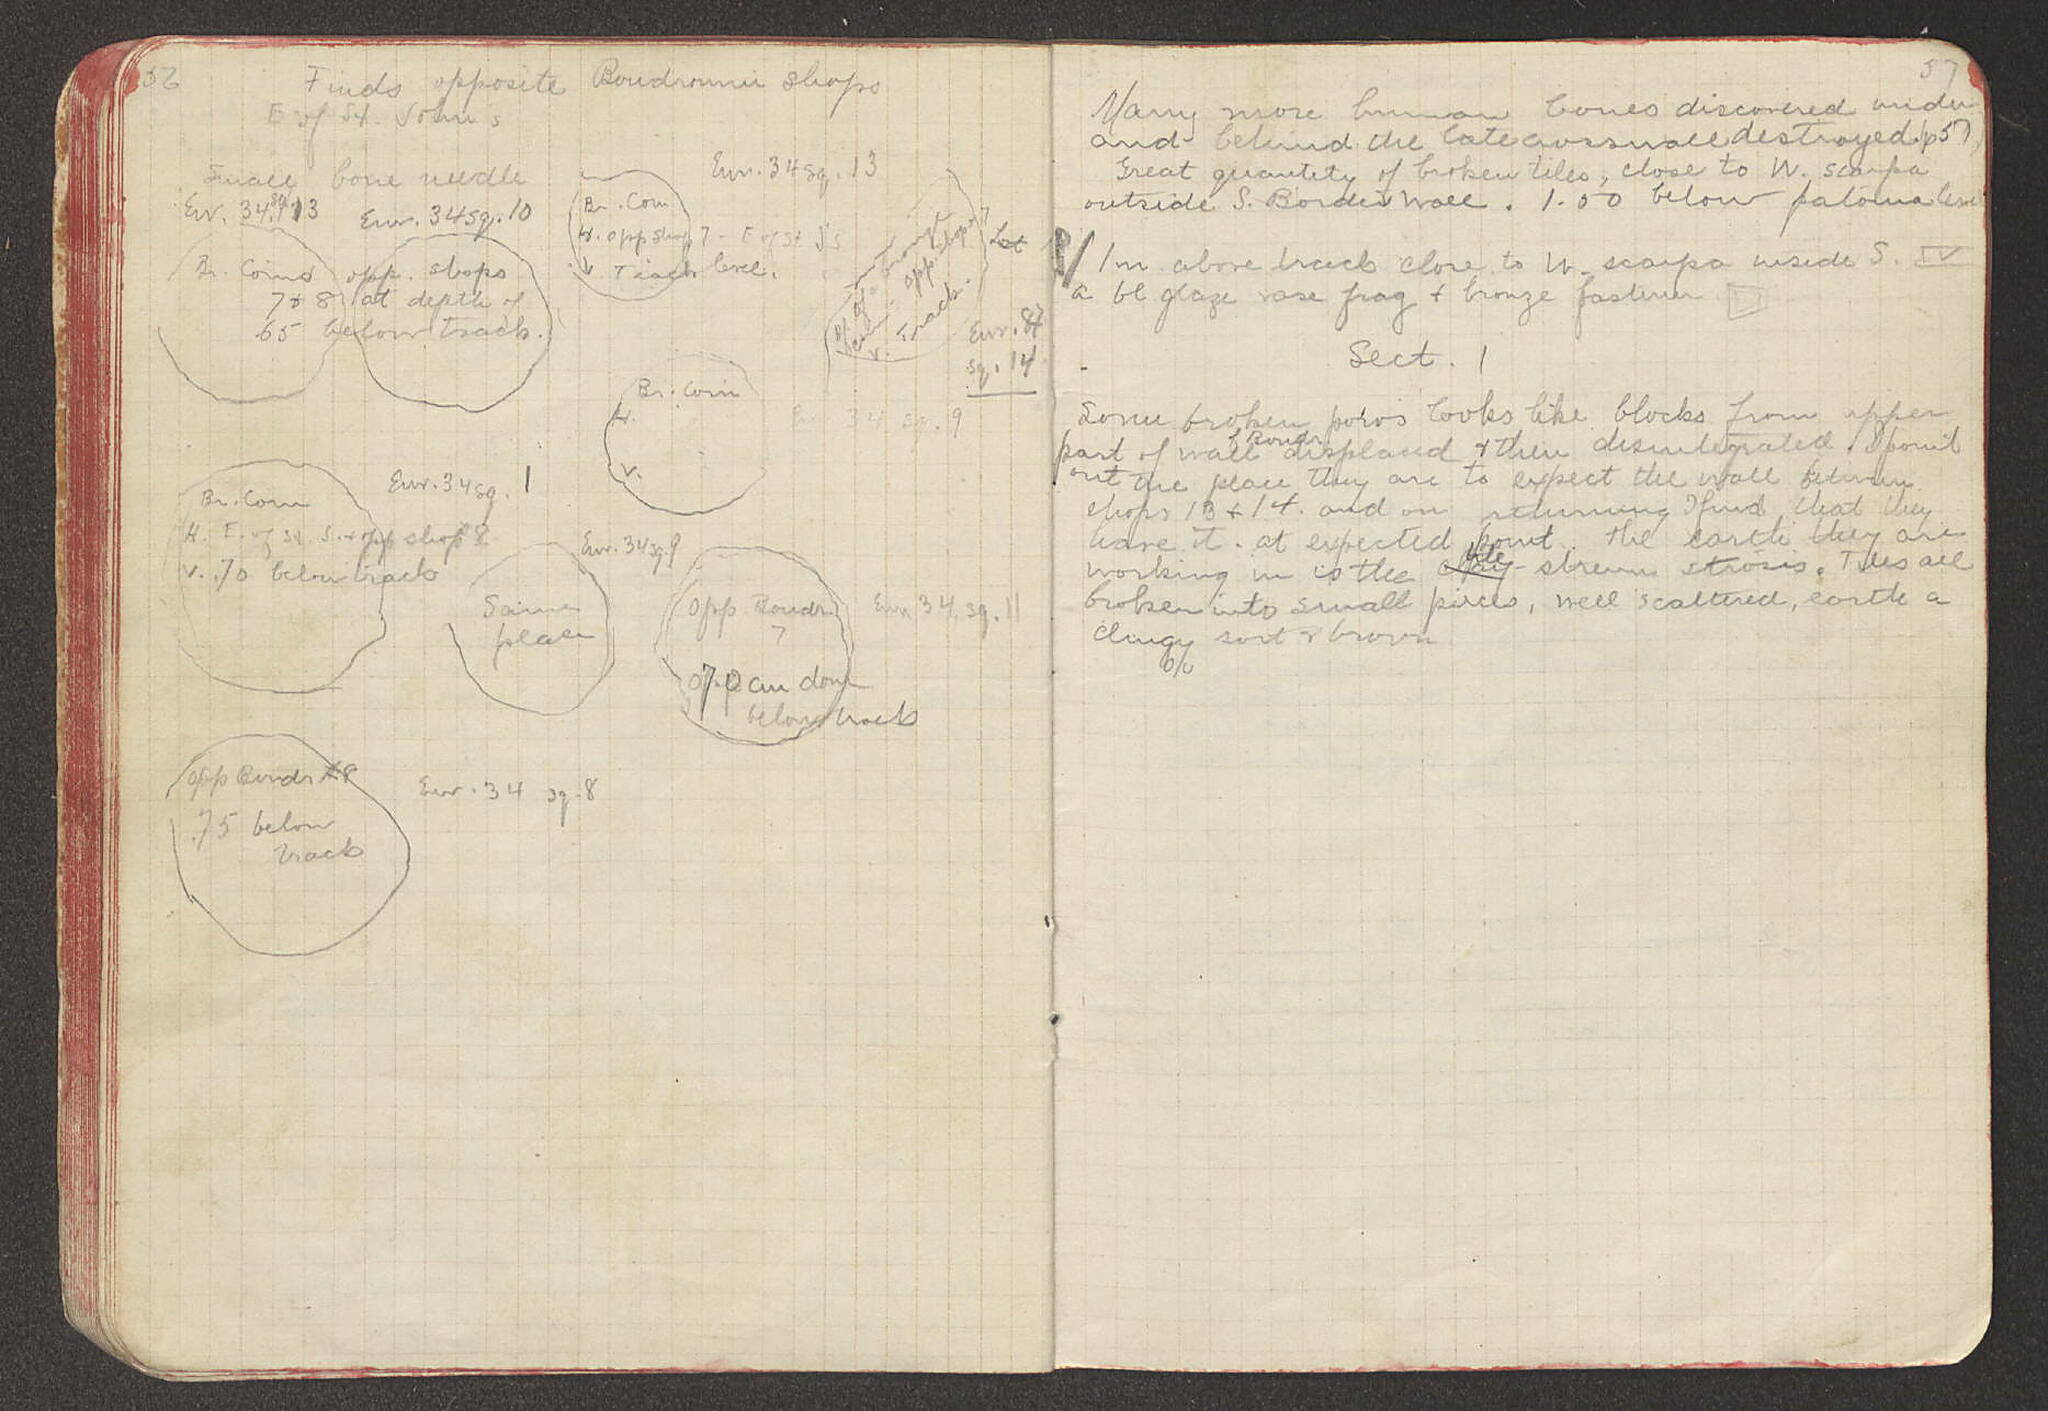 56
Finds opposite Boudroumi shops
E of St. John's
Small bone needle
Env. 34 sq. 13
Env. 34 sq. 10
Br. Coins opp. shops
7 & 8 at depth of
.65 below track.
Env. 34 sq. 13
Br. Coin
H. opp shop 7 - E of St J's
V. Track level.
opp. shop 7
V. Track.
Lot
Env. 34
sq. 14
Br. Coin
H.
V.
Env 34 sq. 9
Br. Coin
H. E. of St. J. & opp shop 8
V. .70 below track
Env. 34 sq. 1
Env. 34 sq 9
Same
place
Opp Boudr
7
.70 cm down
below track
Env 34, sq. 11
Opp Boudr #8
.75 below
track
Env. 34 sq. 8
57
Many more human bones discovered under
and behind the late cross wall destroyed (p 57)
Great quantity of broken tiles, close to W. scarpa
outside S. Border Wall. 1.50 below patoma level
1m above track close to W. scarpa inside S. IV
a bl glaze vase frag & bronze fastener
Sect. 1
Some broken poros looks like blocks from upper
part of wall of Boudr displaced & then disintegrated. I point
out the place they are to expect the wall between
shops 13 & 14. and on returning I find that they
have it. at expected point. The earth they are
working in is the tile-strewn strosis. Tiles all
broken into small pieces, well scattered, earth a
clingy sort & brown